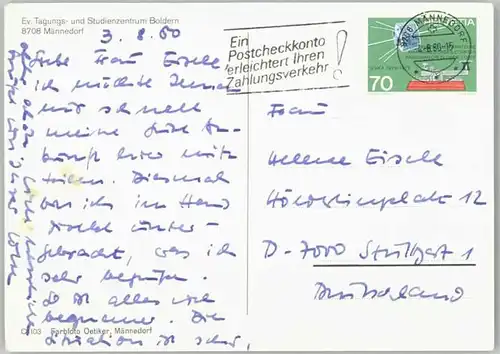 Ev. Tagungs- und Studienzentrum Boldern
8708 Männedorf
3.8.80
Liebe Frau Eisele
ich möchte Ihnen
nur schnell
meine gute An-
kunft hier mit-
teilen. Diesmal
bin ich im Haus
direkt unter-
gebracht, was ich
sehr begrüße.
So ist alles viel
bequemer. Die
Situation ist sehr,
Ein
Postcheckkonto
erleichtert Ihren
Zahlungsverkehr
!
8708 MÄNNEDORF
HELVETIA
70
Frau
Helene Eisele
Hölderlinplatz 12
D-7000 Stuttgart 1
Deutschland
Farbfoto Oetiker, Männedorf